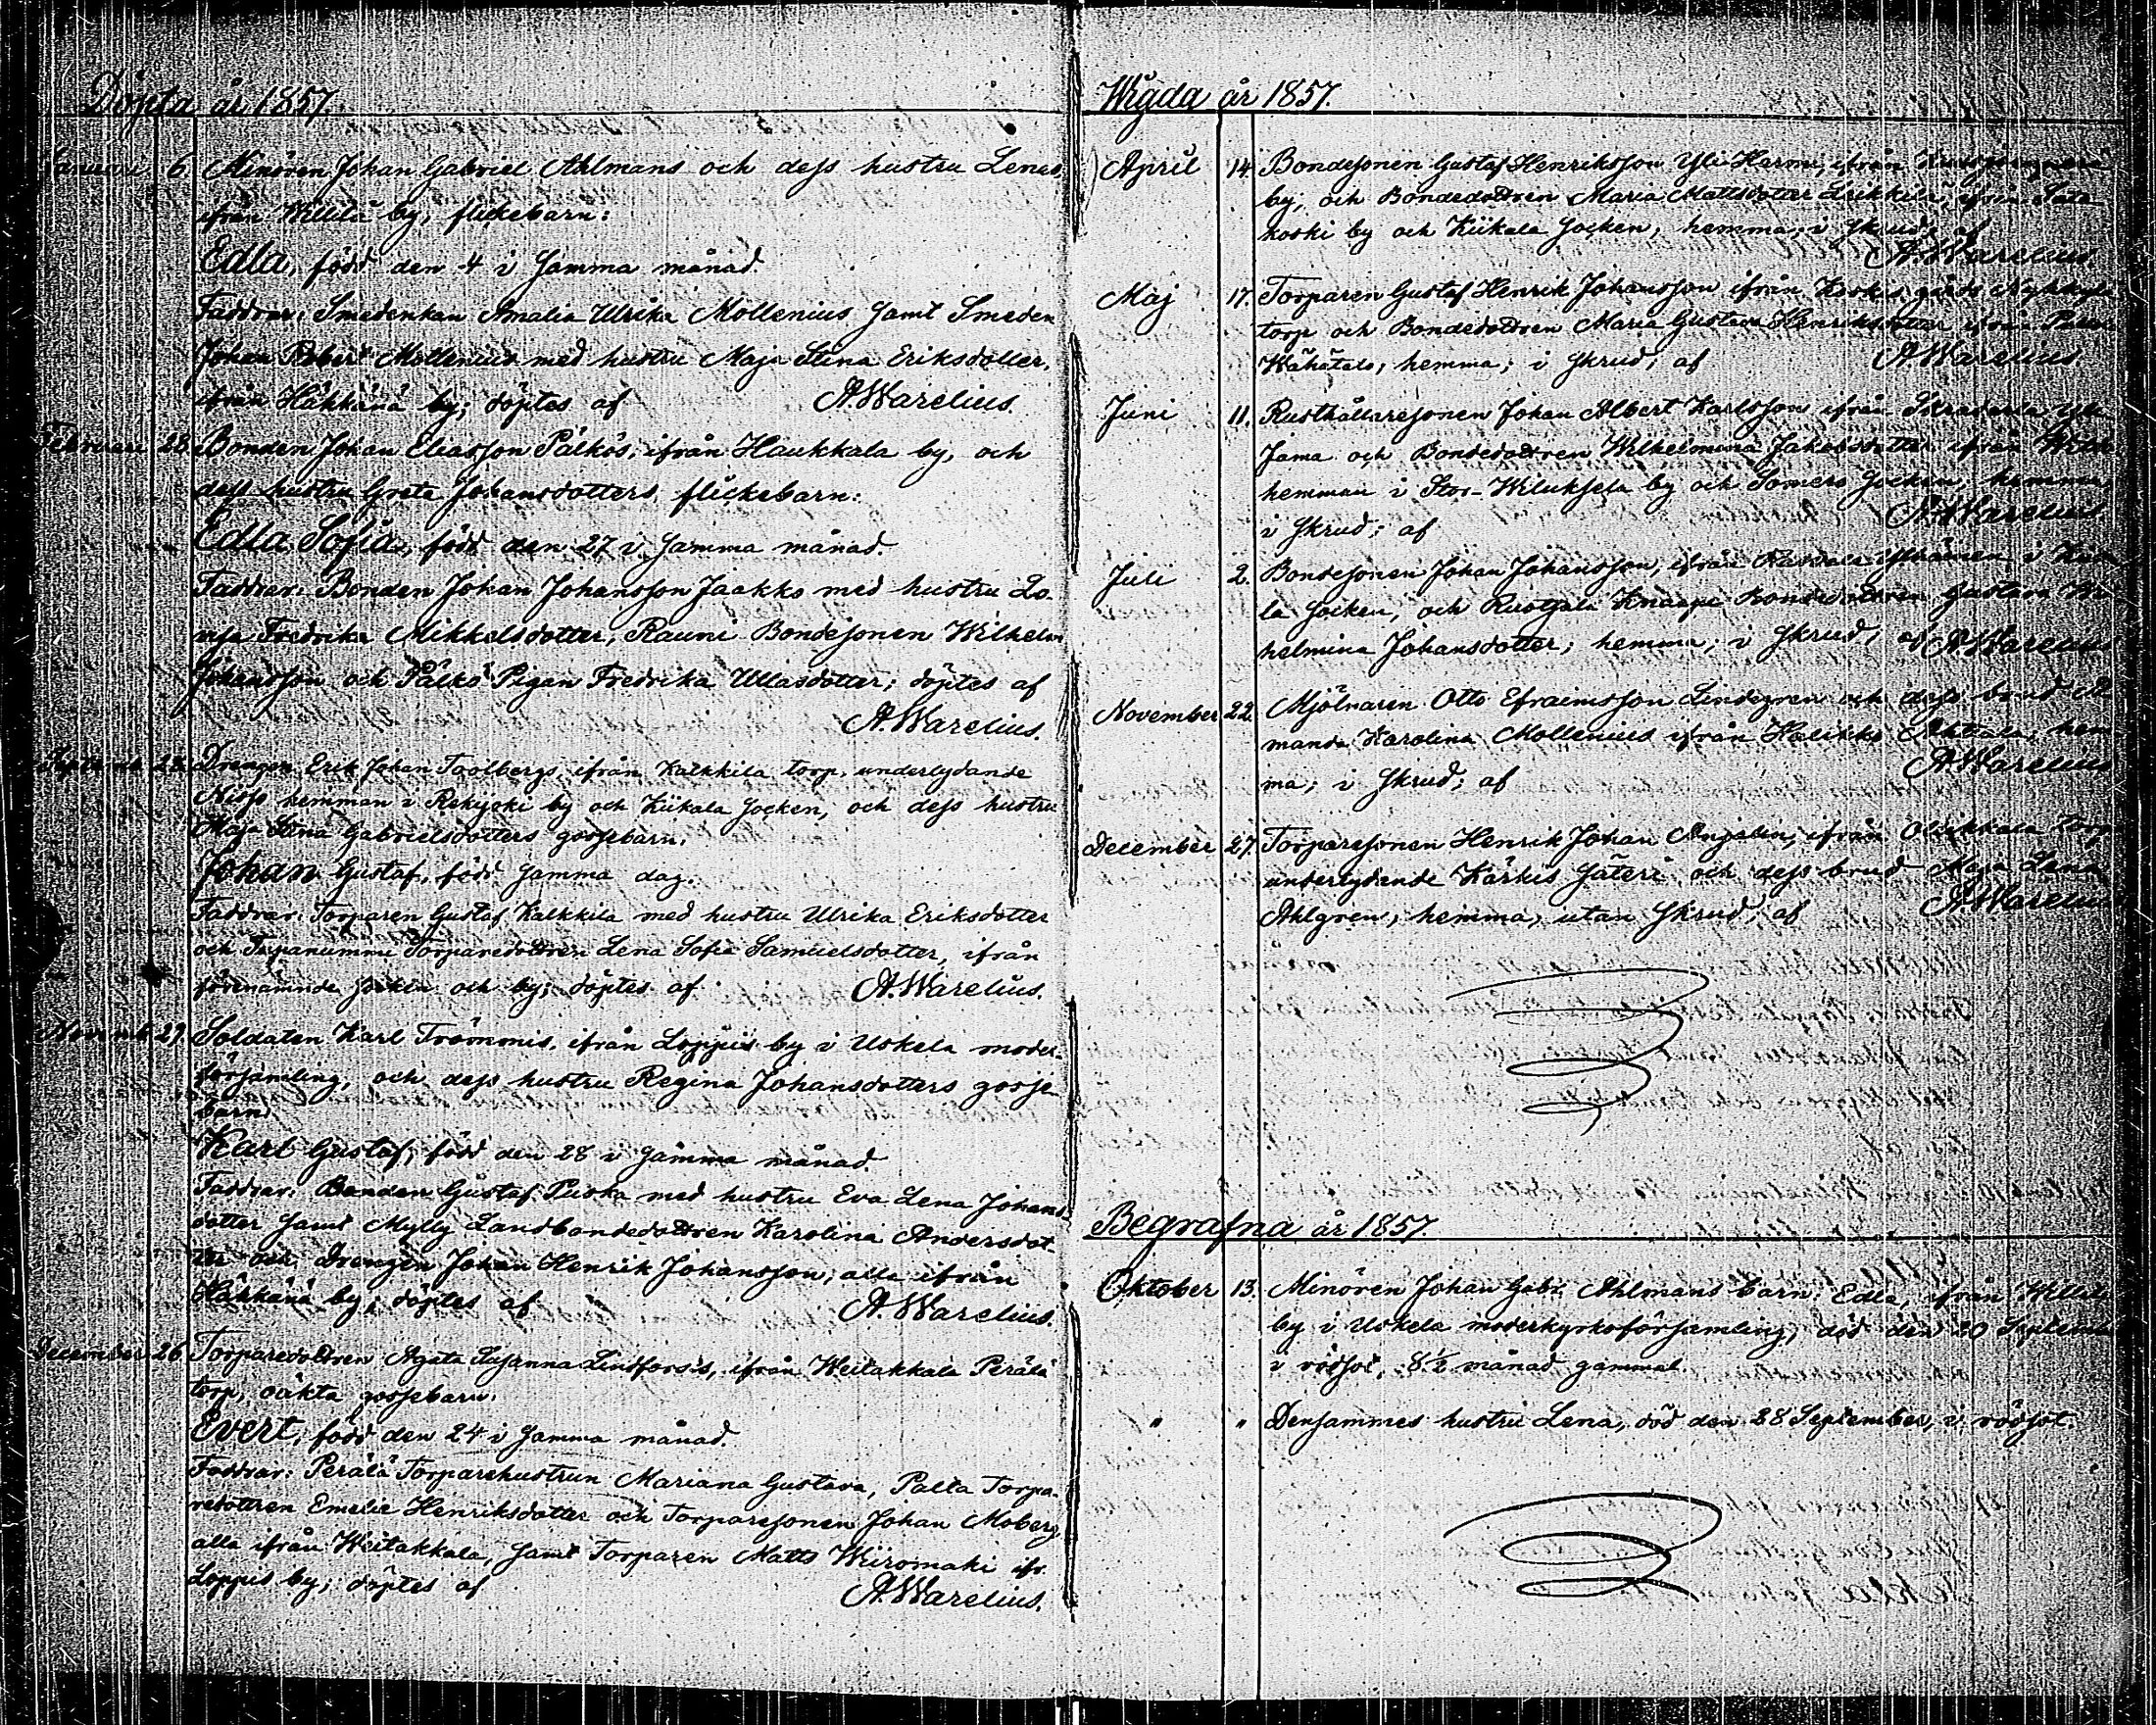 Döpta år 1857.
Januari 6 Minören Johan Gabriel Ahlmans och dess hustru Lenas,
ifrån Willilä by, flickebarn:
Edla, född den 4 i samma månad.
Faddrar: Smedenkan Amalia Ulrika Mollenius samt Smeden
Johan Robert Mollenius med hustru Maja Stina Eriksdotter,
ifrån Häkkänä by; döptes af A. Warelius.
Februari 28 Bonden Johan Eliasson Pälkös, ifrån Haukkala by, och
dess hustru Greta Johansdotters, flickebarn:
Edla Sofia, född den 27 i samma månad.
Faddrar: Bonden Johan Johansson Jaakko med hustru Lo-
visa Fredrika Mikkelsdotter, Rauni Bondesonen Wilhelm
Johansson och Pälkö Pigan Fredrika Ullasdotter; döptes af
A. Warelius.
Drengen Erik Johan Taolbergs, ifrån Kalkkila torp, underlydande
Nisp hemman i Rekijoki by och Kiikala socken, och dess hustru
Maja Stina Gabrielsdotters gossebarn.
Johan Gustaf, född samma dag.
Faddrar: Torparen Gustaf Kalkkila med hustru Ulrika Eriksdotter
och Torparedottren Lena Sofia Samuelsdotter, ifrån
förenämnde socken och by; döptes af A. Warelius.
29. Soldaten Karl Trömmis, ifrån Loppis by i Uskela moder-
församling, och dess hustru Regina Johansdotters gosse-
barn
Karl Gustaf, född den 28 i samma månad.
Faddrar: Bonden Gustaf Puska med hustru Eva Lena Johans-
dotter samt Mylly Landbondedottren Karolina Andersdot-
ter och Drengen Johan Henrik Johansson, alla ifrån
Häkkänä by; döptes af A. Warelius.
December 26 Torparedottren Agata Susanna Lindforss's, ifrån Weitakkala Perälä
torp, oäkta gossebarn.
Evert, född den 24 i samma månad.
Faddrar: Perälä Torparehustrun Mariana Gustava, Palta Torpa-
redottren Emelie Henriksdotter och Torparesonen Johan Moberg,
alla ifrån Weitakkala, samt Torparen Matts Wiiromäki ifr.
Loppis by; döptes af A. Warelius.
Wigda år 1857.
April 14. Bondesonen Gustaf Henriksson Yli Harma, ifrån
by, och Bondedottren Maria Mattsdotter ifrån Sata
koski by och Kiikala socken, hemma; i skrud; af
A. Warelius.
Maj 17. Torparen Gustaf Henrik Johansson ifrån
torp och Bondedottren Maria Gustava Henriksdotter ifrån
Wähätalo, hemma; i skrud; af A. Warelius.
Juni 11. Rusthållaresonen Johan Albert Karlsson, ifrån
Jama och Bondedottren Wilhelmina Jakobsdotter ifrån
hemman i Stor-Wiluksela by och Somero socken, hemma,
i skrud; af A. Warelius
Juli 2. Bondesonen Johan Johansson, ifrån
la socken, och Ruotsala Knaapi Bondedottren Gustava Wil-
helmina Johansdotter; hemma; i skrud; af A. Warelius
November 22. Mjölnaren Otto Efraimsson Lindegren och dess brud A-
manda Karolina Mollenius ifrån Halikko hem
ma; i skrud; af A. Warelius
December 27. Torparesonen Henrik Johan ifrån torp
underlydande Kärkis säteri och dess brud Maja Lena
Ahlgren, hemma, utan skrud; af A. Warelius
Begrafna år 1857.
Oktober 13. Minören Johan Gabr. Ahlmans barn: Edla, ifrån Willilä
by i Uskela moderkyrkoförsamling, död den 20 September
i rödsot, 8 1/2 månad gammal.
" " Densammes hustru Lena, död den 28 September, i rödsot.